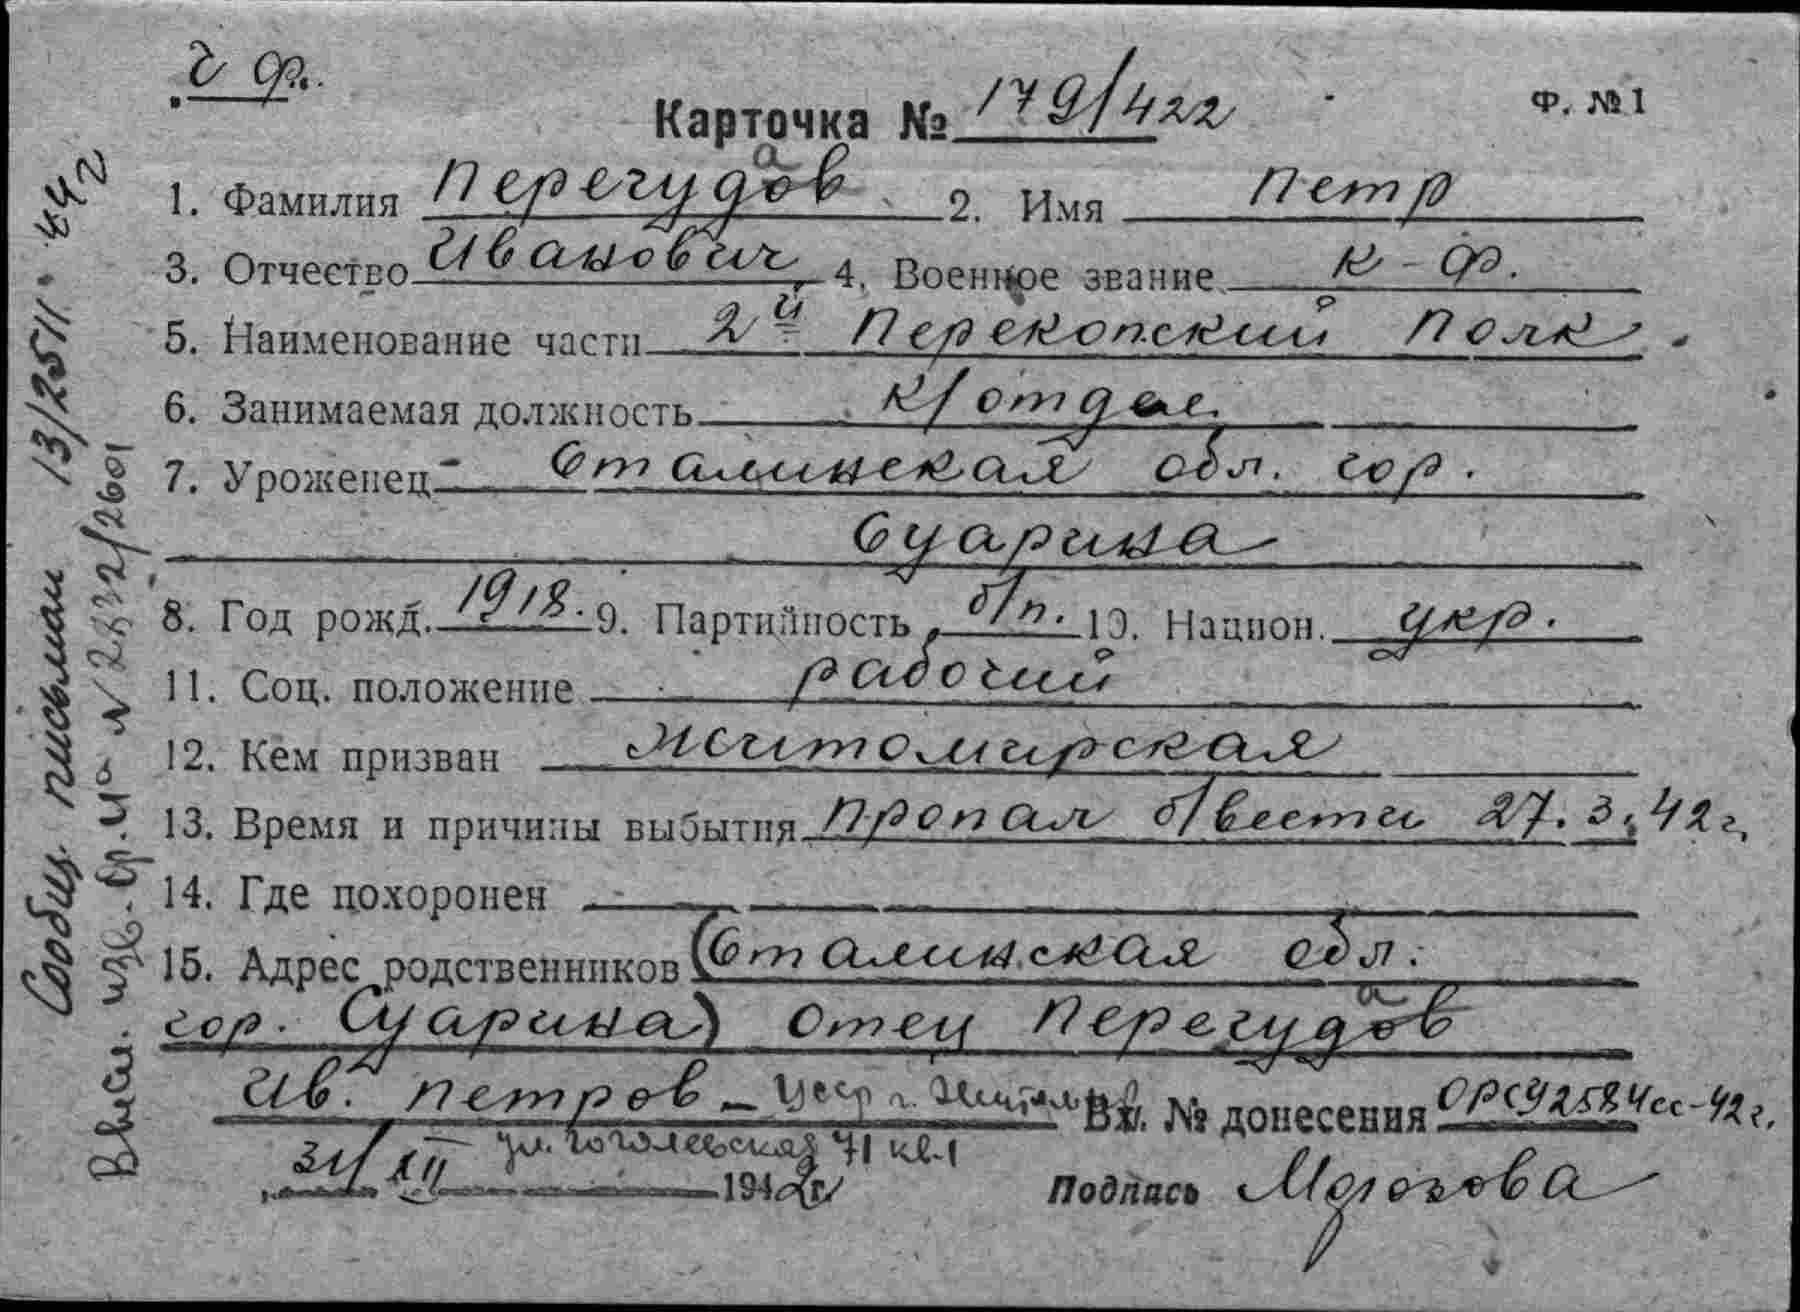 Ч Ф.
Карточка № 179/422
Ф. №1
1. Фамилия Перегудов а 2. Имя Петр
3. Отчество Иванович 4. Военное звание к-ф.
5. Наименование части 2й Перекопский полк
6. Занимаемая должность к/отдел.
7. Уроженец Сталинская обл. гор.
Суарина
8. Год рожд. 1918. 9. Партийность б/п. 10. Национ. укр.
11. Соц. положение рабочий
12. Кем призван Житомирская
13. Время и причины выбытия пропал б/вести 27.3.42 г.
14. Где похоронен
15. Адрес родственников (Сталинская обл.
гор. Суарина) отец Перегудов а
Ив. Петров - УССР г. Житомир Вх. № донесения ОРСУ 2584сс-42г.
ул. Гоголевская 71 кв.1
31/XII 1942г Подпись Морозова
Сообщ. письмом 13/2511. 44г
Высл. изв. Ф. №